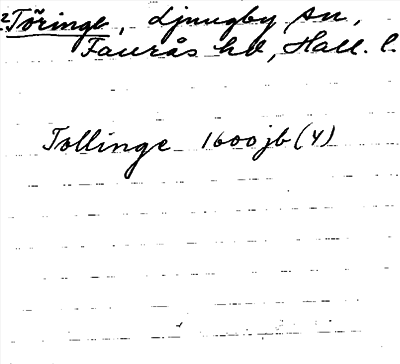 2 Töringe, Ljungby sn,
Faurås hd, Hall. l.
Tollinge 1600 jb (4)